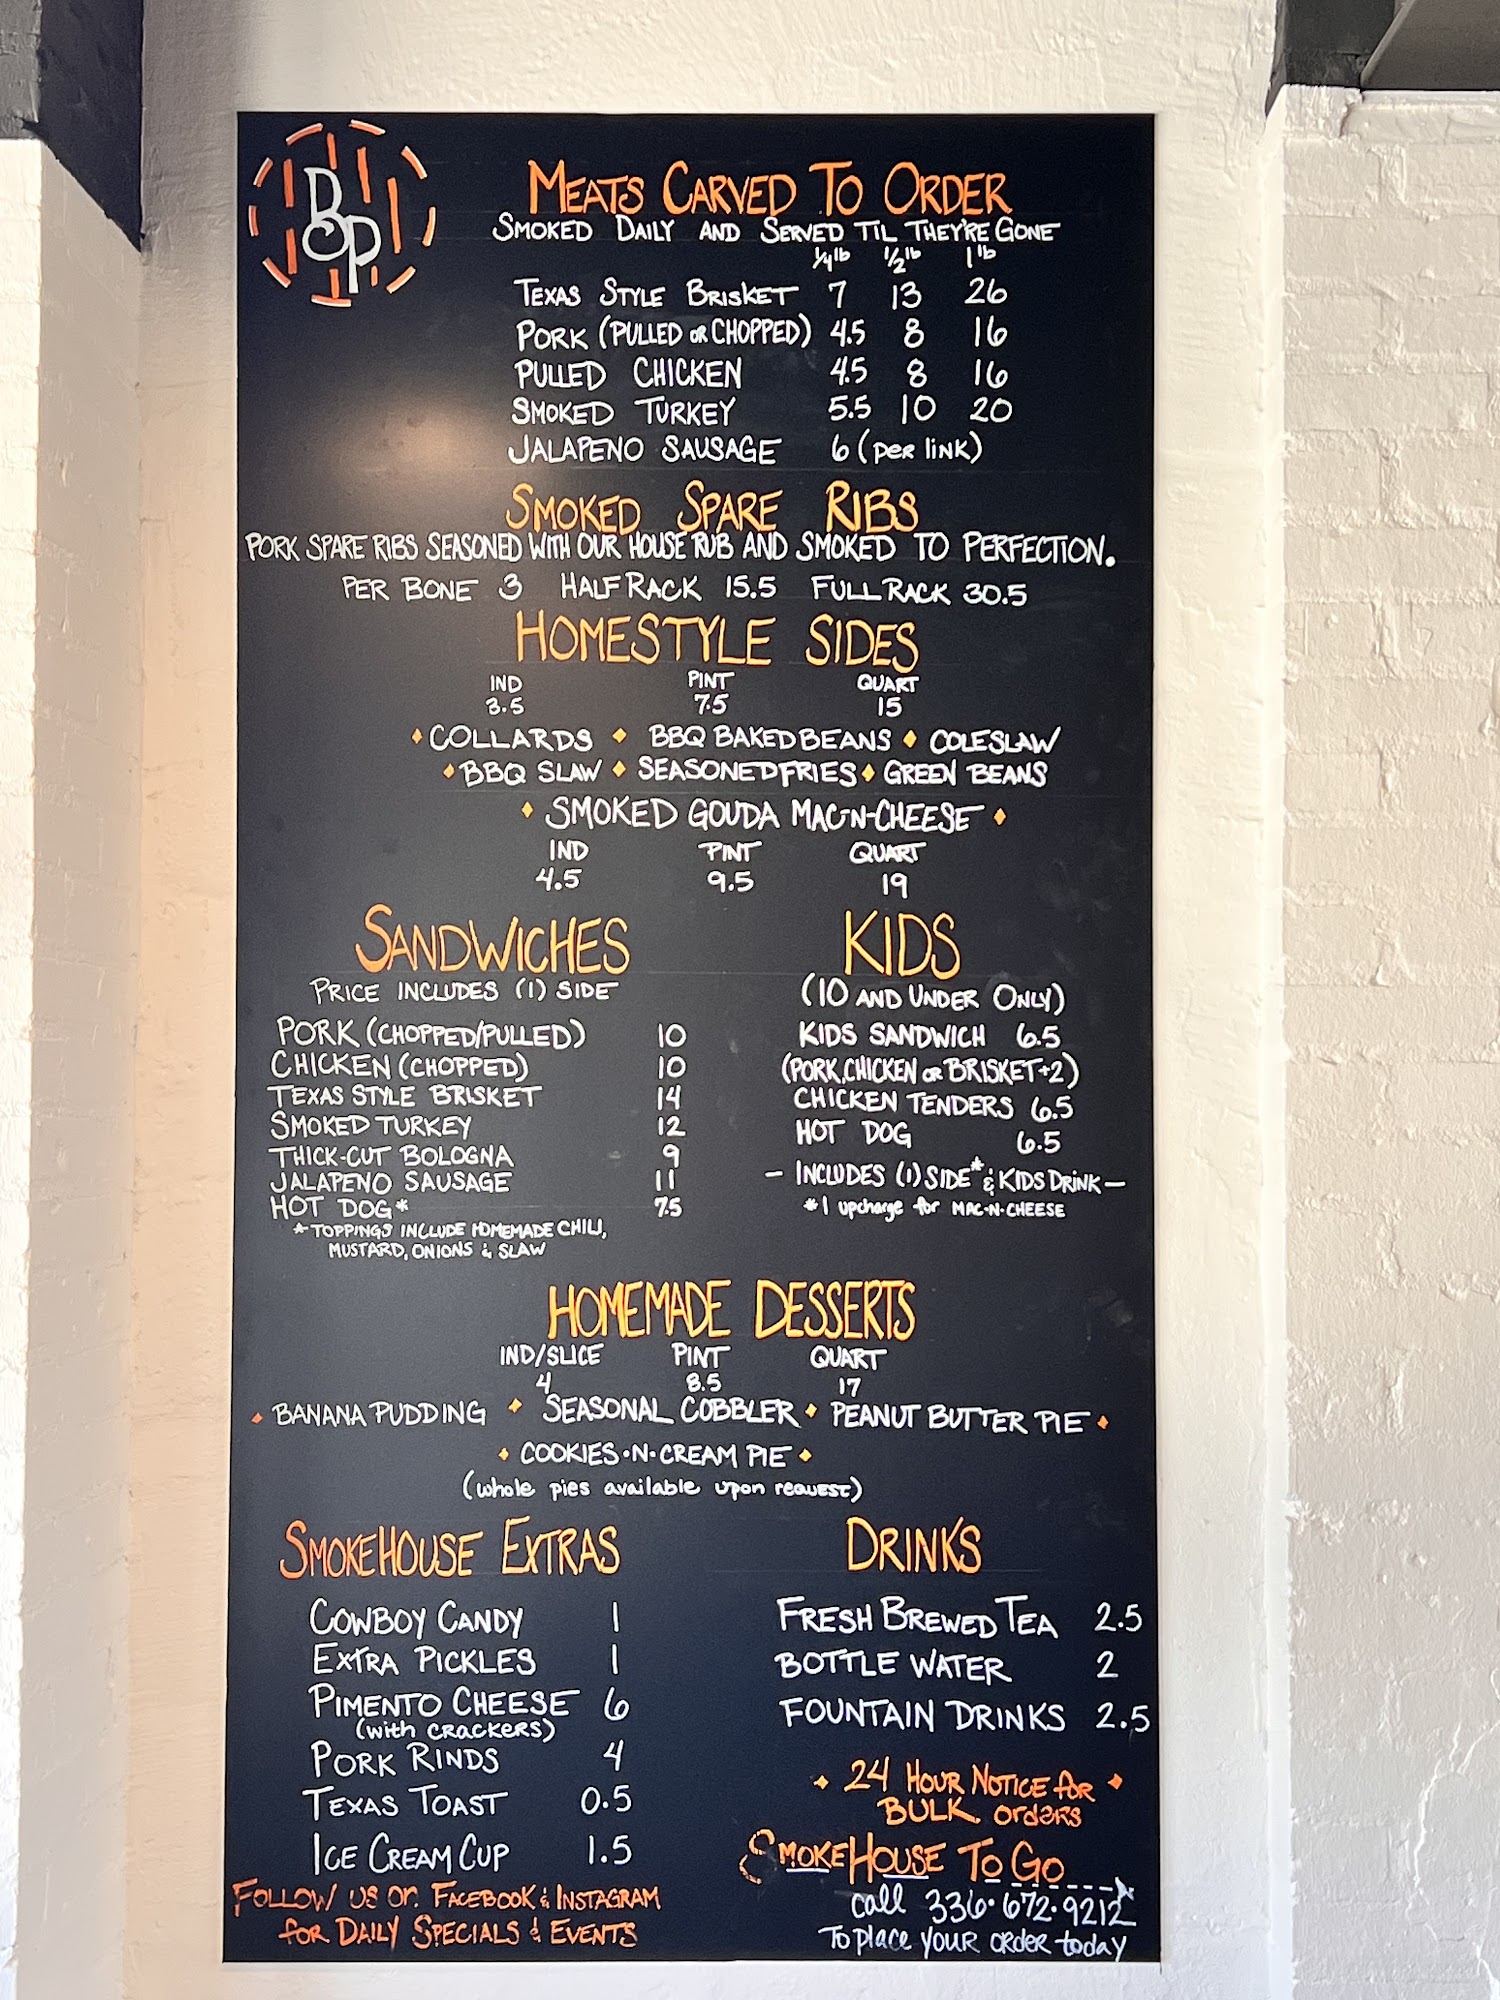 BOP
MEATS CARVED TO ORDER
SMOKED DAILY AND SERVED TIL THEY'RE GONE
1/4 lb 1/2 lb 1 lb
TEXAS STYLE BRISKET 7 13 26
PORK (PULLED OR CHOPPED) 4.5 8 16
PULLED CHICKEN 4.5 8 16
SMOKED TURKEY 5.5 10 20
JALAPENO SAUSAGE 6 (per link)
SMOKED SPARE RIBS
PORK SPARE RIBS SEASONED WITH OUR HOUSE RUB AND SMOKED TO PERFECTION.
PER BONE 3 HALF RACK 15.5 FULL RACK 30.5
HOMESTYLE SIDES
IND PINT QUART
3.5 7.5 15
♦ COLLARDS ♦ BBQ BAKED BEANS ♦ COLESLAW
♦ BBQ SLAW ♦ SEASONED FRIES ♦ GREEN BEANS
♦ SMOKED GOUDA MAC-N-CHEESE ♦
IND PINT QUART
4.5 9.5 19
SANDWICHES
PRICE INCLUDES (1) SIDE
PORK (CHOPPED/PULLED) 10
CHICKEN (CHOPPED) 10
TEXAS STYLE BRISKET 14
SMOKED TURKEY 12
THICK-CUT BOLOGNA 9
JALAPENO SAUSAGE 11
HOT DOG* 7.5
*TOPPINGS INCLUDE HOMEMADE CHILI,
MUSTARD, ONIONS & SLAW
KIDS
(10 AND UNDER ONLY)
KIDS SANDWICH 6.5
(PORK, CHICKEN OR BRISKET+2)
CHICKEN TENDERS 6.5
HOT DOG 6.5
— INCLUDES (1) SIDE* & KIDS DRINK —
*1 upcharge for MAC-N-CHEESE
HOMEMADE DESSERTS
IND/SLICE PINT QUART
4 8.5 17
♦ BANANA PUDDING ♦ SEASONAL COBBLER ♦ PEANUT BUTTER PIE ♦
♦ COOKIES·N·CREAM PIE ♦
(whole pies available upon request)
SMOKEHOUSE EXTRAS
COWBOY CANDY 1
EXTRA PICKLES 1
PIMENTO CHEESE 6
(with crackers)
PORK RINDS 4
TEXAS TOAST 0.5
ICE CREAM CUP 1.5
FOLLOW US On FACEBOOK & INSTAGRAM
for DAILY SPECIALS & EVENTS
DRINKS
FRESH BREWED TEA 2.5
BOTTLE WATER 2
FOUNTAIN DRINKS 2.5
♦ 24 HOUR NOTICE for ♦
BULK orders
SMOKEHOUSE TO GO
call 336·672·9212
To place YOUR order today